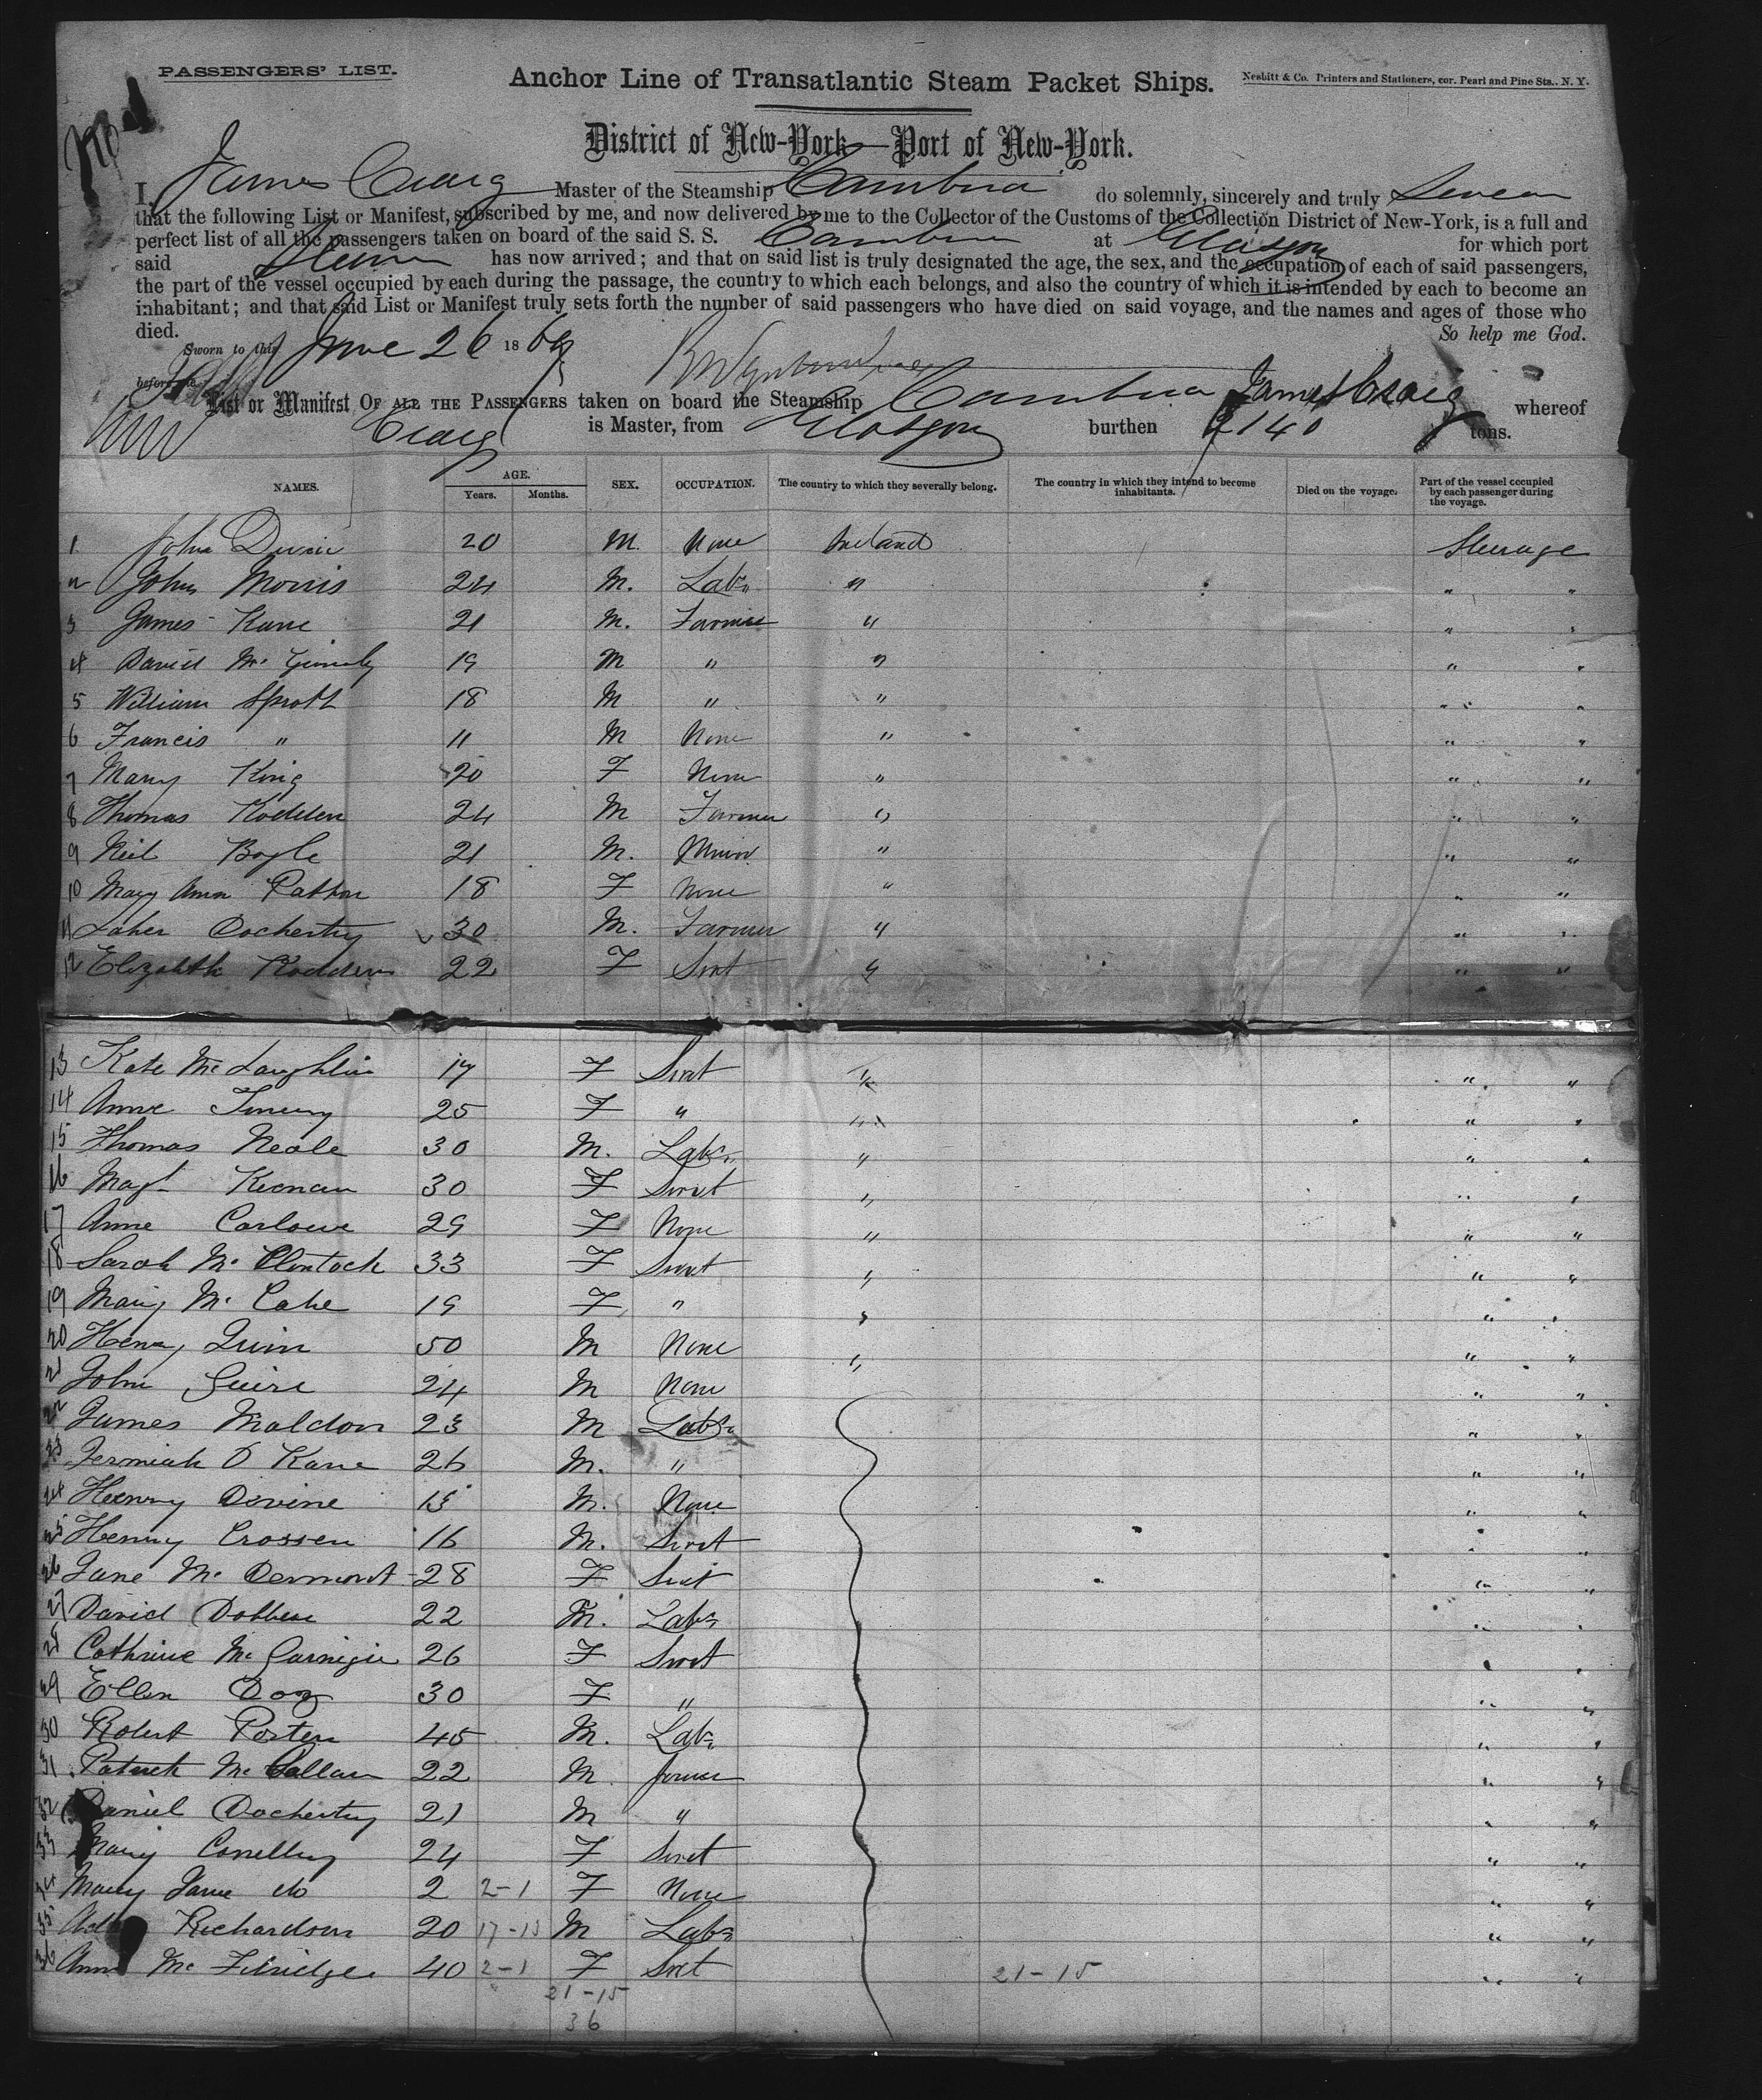 PASSENGERS' LIST.
Anchor Line of Transatlantic Steam Packet Ships.
Nesbitt & Co. Printers and Stationers, cor. Pearl and Pine Sts., N. Y.
District of New-York—Port of New-York.
I, James Craig Master of the Steamship Cambria do solemnly, sincerely and truly Swear
that the following List or Manifest, subscribed by me, and now delivered by me to the Collector of the Customs of the Collection District of New-York, is a full and
perfect list of all the passengers taken on board of the said S. S. Cambria at Glasgow for which port
said Steamer has now arrived; and that on said list is truly designated the age, the sex, and the occupation of each of said passengers,
the part of the vessel occupied by each during the passage, the country to which each belongs, and also the country of which it is intended by each to become an
inhabitant; and that said List or Manifest truly sets forth the number of said passengers who have died on said voyage, and the names and ages of those who
died. So help me God.
Sworn to this June 26 1869
before me
James Craig
List or Manifest OF ALL THE PASSENGERS taken on board the Steamship Cambria whereof
Craig is Master, from Glasgow burthen 2140 tons.
NAMES. AGE. Years. Months. SEX. OCCUPATION. The country to which they severally belong. The country in which they intend to become inhabitants. Died on the voyage. Part of the vessel occupied by each passenger during the voyage.
1 John 20 M. None Ireland Steerage
2 John Morris 24 M. Labr " " "
3 James Kane 21 M. Farmer " " "
4 David 19 M " " " "
5 William Sprott 18 M " " " "
6 Francis " 11 M None " " "
7 Mary King 20 F None " " "
8 Thomas Rodden 24 M Farmer " " "
9 Neil Bogle 21 M. " " "
10 Mary Ann Patton 18 F None " " "
11 Docherty 30 M. Farmer " " "
12 Elizabeth Rodden 22 F Servt " " "
13 Kate McLaughlin 17 F Servt " " "
14 Anne 25 F " " " "
15 Thomas Neale 30 M. Labr " " "
16 Magt Keenan 30 F Servt " " "
17 Anne 29 F None " " "
18 Sarah Mc Clintock 33 F Servt " " "
19 Mary Mc Cahe 19 F " " " "
20 Henry Quinn 50 M None " " "
21 John 24 M None " "
22 James Maldon 23 M Labr " "
23 Jermiah O Kane 26 M. " " "
24 Henry Devine 15 M. None " "
25 Henry Crossen 16 M. Servt " "
26 Jane Mc Dermont 28 F Servt " "
27 David Dobben 22 M. Labr " "
28 Cathrine Mc 26 F Servt " "
29 Ellen 30 F " " "
30 Robert Porter 45 M. Labr " "
31 Patrick Mc Callan 22 M. farmer " "
32 Daniel Docherty 21 M " " "
33 Mary Conelley 24 F Servt " "
34 Mary Jane do 2 2-1 F None " "
35 Richardson 20 17-13 M Labr " "
36 Ann Mc 40 2-1 F Servt 21-15 " "
21-15
36